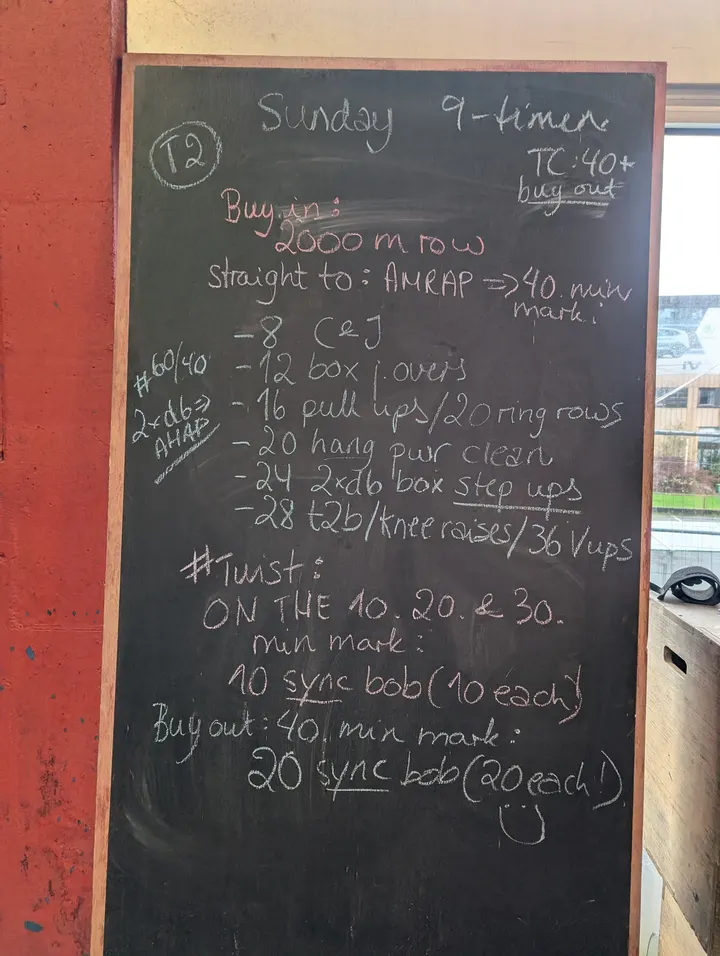 Sunday 9-timen
T2
TC: 40+
buy out
Buy in:
2000 m row
straight to: AMRAP => 40. min
mark:
- 8 C&J
- 12 box j.overs
- 16 pull ups/20 ring rows
- 20 hang pwr clean
- 24 2xdb box step ups
- 28 t2b/knee raises/36 V ups
#60/40
2xdb=>
AHAP
#Twist:
ON THE 10. 20. & 30.
min mark:
10 sync bob (10 each)
Buy out: 40. min mark:
20 sync bob (20 each!)